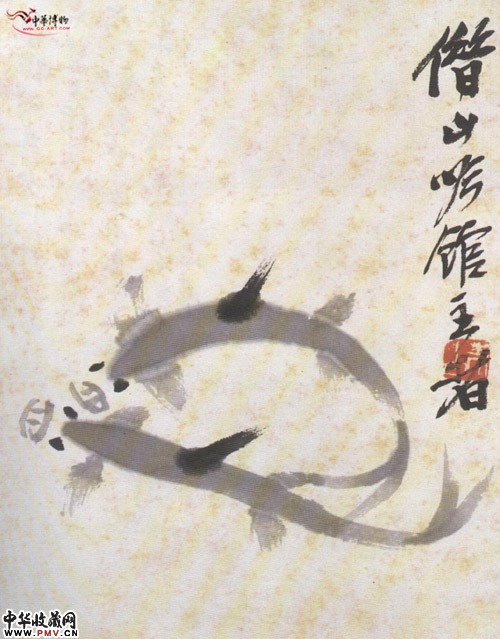 中华博物
WWW.GG-ART.COM
借山吟館主者
中华收藏网
www.PMV.CN